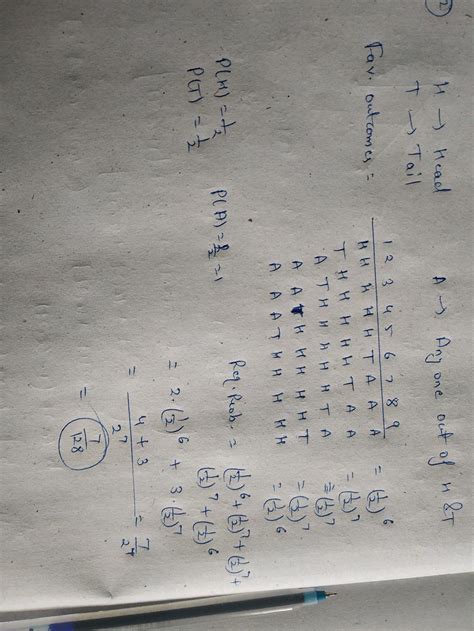 2
H → Head A → Any one out of H & T
T → Tail
Fav. outcomes =
1 2 3 4 5 6 7 8 9
H H H H H T A A A = (1/2)^6
T H H H H H T A A = (1/2)^7
A T H H H H H T A = (1/2)^7
A A T H H H H H T = (1/2)^7
A A A T H H H H H = (1/2)^6
P(H) = 1/2 P(A) = 2/2 = 1
P(T) = 1/2
Req Prob. = (1/2)^6 + (1/2)^7 + (1/2)^7 +
(1/2)^7 + (1/2)^6
= 2.(1/2)^6 + 3(1/2)^7
= 4 + 3 / 2^7 = 7/2^7
= 7/128